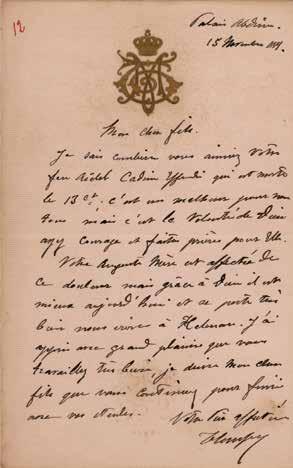 12
Palais Abdine
15 Novembre 1889.
Mon cher fils.
Je sais combien vous aimiez votre
feu Kidel Cadin Effendi qui est morte
le 13 ct. c'est un malheur pour nous
tous mais c'est la Volonté de Dieu
ayez courage et faites prières pour Elle.
Votre Auguste Mère est affectée de
ce douleur mais grâce à Dieu il est
mieux aujourd'hui et se porte très
bien nous vivons à Helouan. J'ai
appris avec grand plaisir que vous
travaillez très bien, je desire Mon cher
fils que vous continuez pour finir
avec vos études.
Votre Père affectué